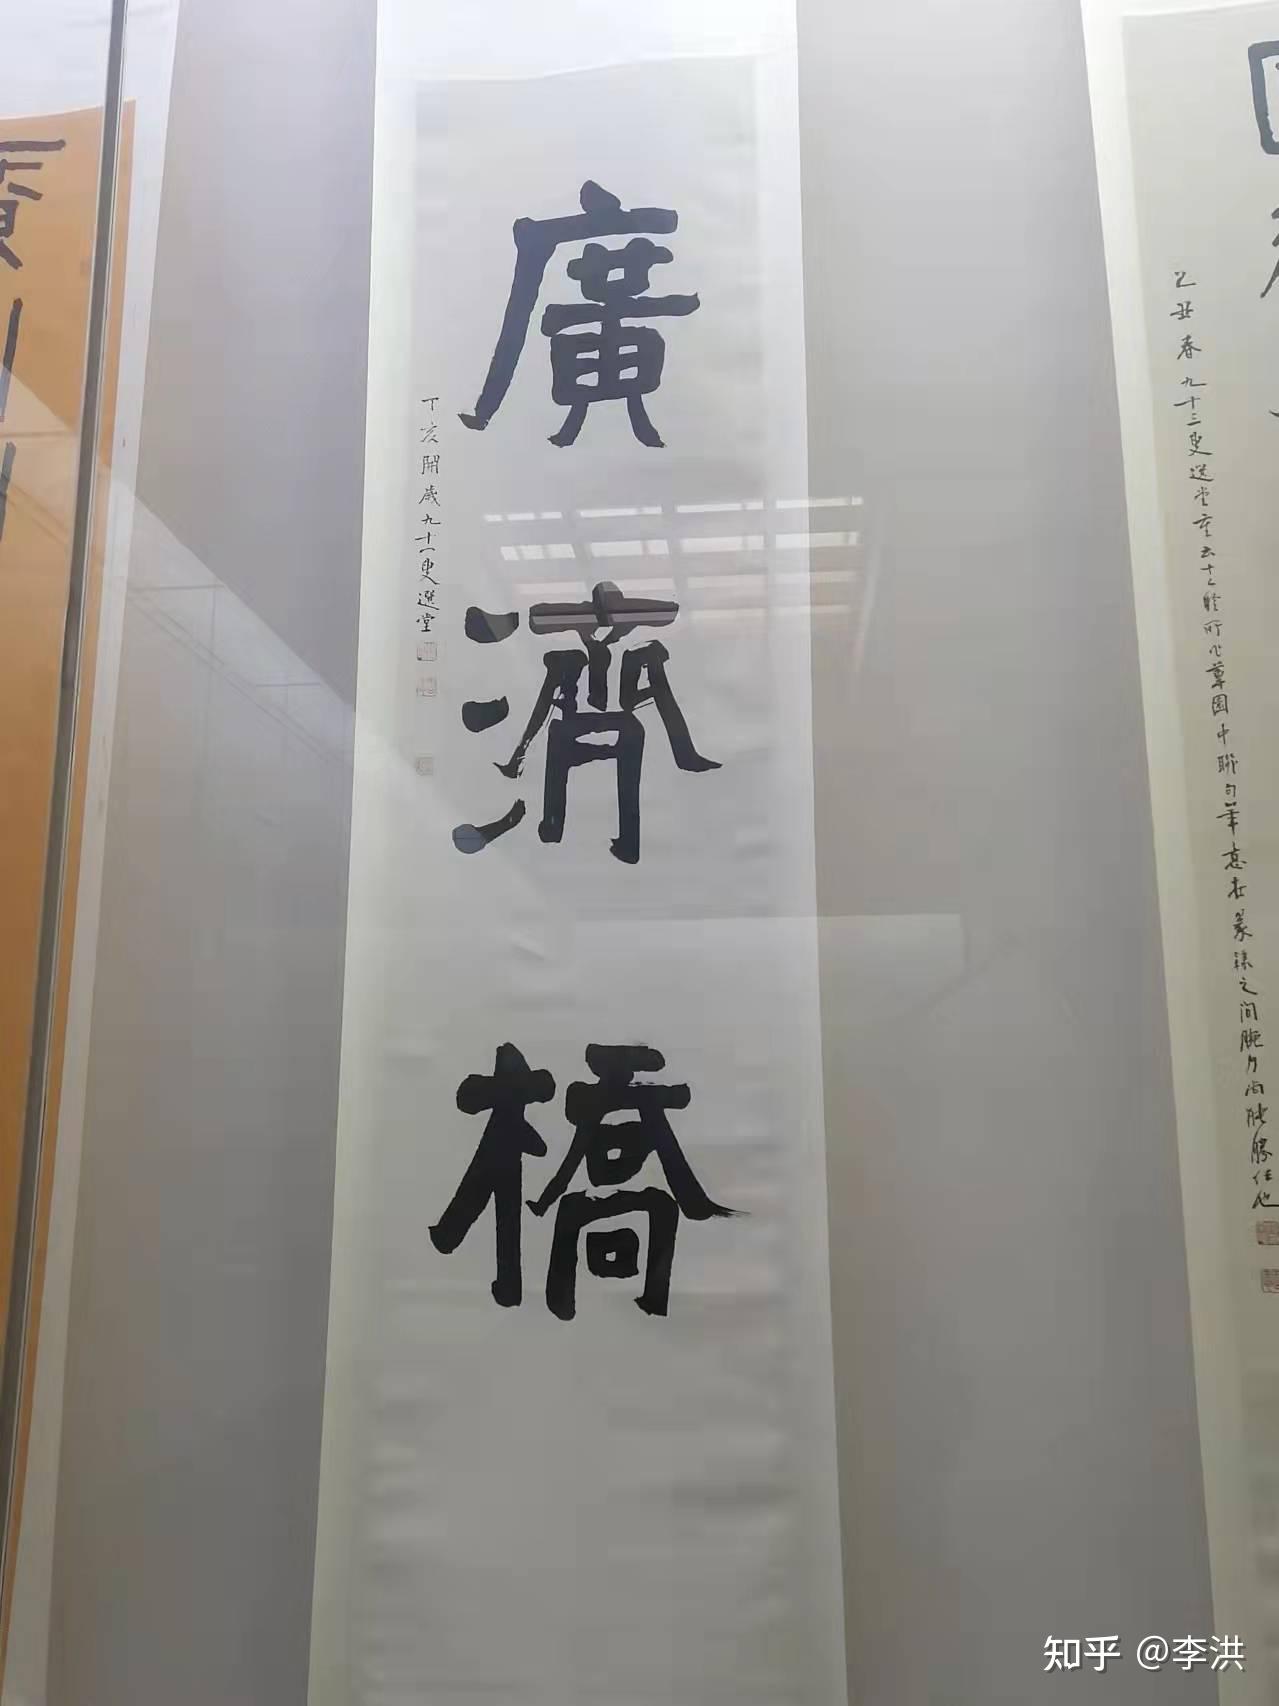 廣濟橋
丁亥開歲九十一叟選堂
己丑春九十三叟選堂重書十七齡所作蓴園中聯句筆意在篆隸之間腕力尚能勝任也
知乎 @李洪